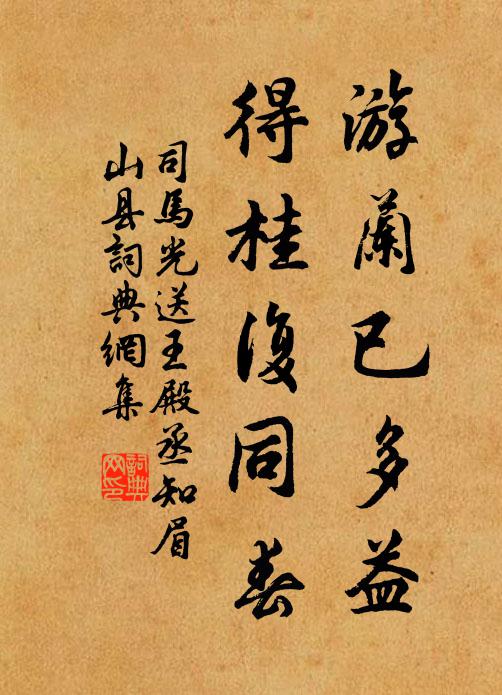 游蘭已多益
得桂復同春
司馬光送王殿丞知眉
山县詞典網集
詞典
网印